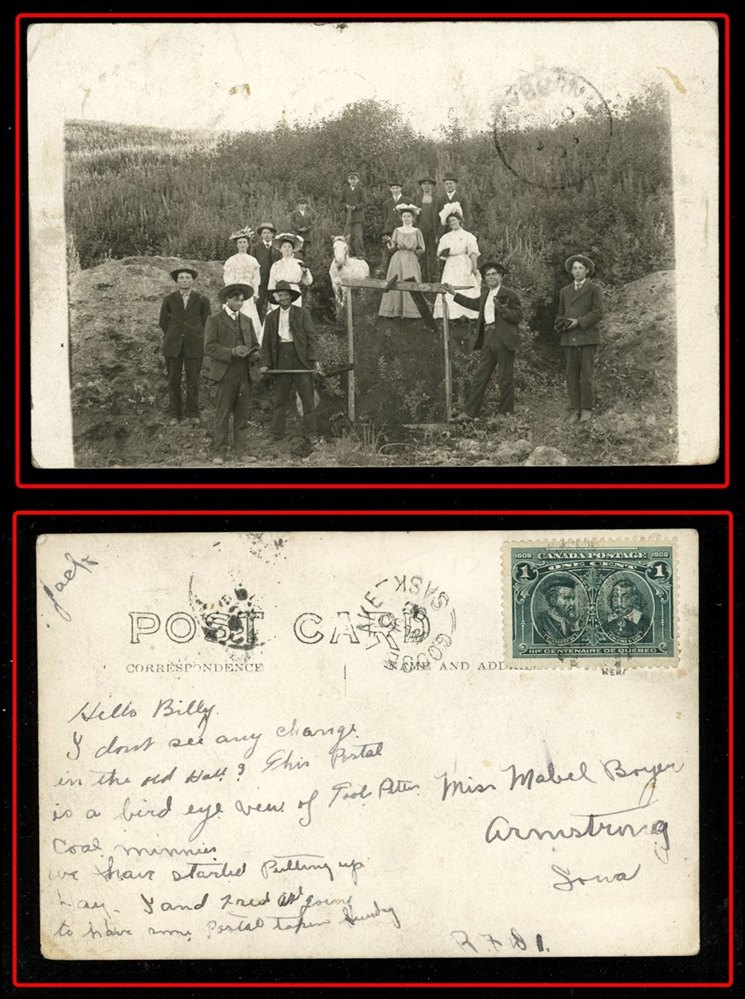 Jack
POST CARD
CORRESPONDENCE
NAME AND ADD
GOOSE LAKE
SASK
1608 CANADA POSTAGE 1908
1 ONE CENT 1
IIIe CENTENAIRE DE QUÉBEC
Hello Billy
I dont see any change
in the old Hat? This Postal
is a bird eye view of Tool Peter
Coal minnies
we have started Putting up
hay. I and Fred are going
to have some Postal taken Sunday
Miss Mabel Boyer
Armstrong
Iowa
R.F.D 1.